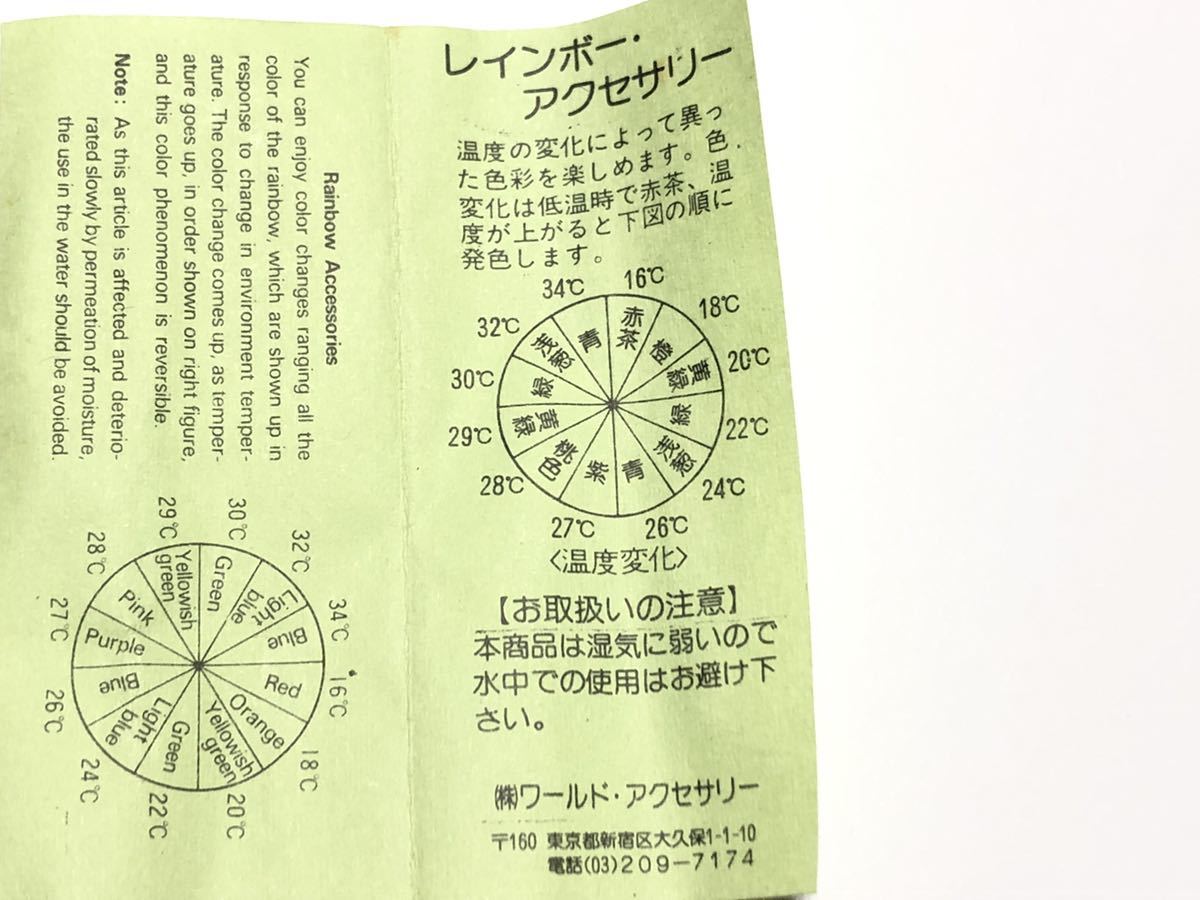 レインボー・
アクセサリー
温度の変化によって異っ
た色彩を楽しめます。色
変化は低温時で赤茶、温
度が上がると下図の順に
発色します。
16℃
18℃
20℃
22℃
24℃
26℃
27℃
28℃
29℃
30℃
32℃
34℃
赤茶
橙
黄緑
緑
浅葱
青
紫
桃色
黄緑
緑
浅葱
青
〈温度変化〉
【お取扱いの注意】
本商品は湿気に弱いので
水中での使用はお避け下
さい。
㈱ワールド・アクセサリー
〒160 東京都新宿区大久保1-1-10
電話(03)209-7174
Rainbow Accessories
You can enjoy color changes ranging all the
color of the rainbow, which are shown up in
response to change in environment temper-
ature. The color change comes up, as temper-
ature goes up, in order shown on right figure,
and this color phenomenon is reversible.
Note: As this article is affected and deterio-
rated slowly by permeation of moisture,
the use in the water should be avoided.
16℃
18℃
20℃
22℃
24℃
26℃
27℃
28℃
29℃
30℃
32℃
34℃
Red
Orange
Yellowish
green
Green
Light
blue
Blue
Purple
Pink
Yellowish
green
Green
Light
blue
Blue